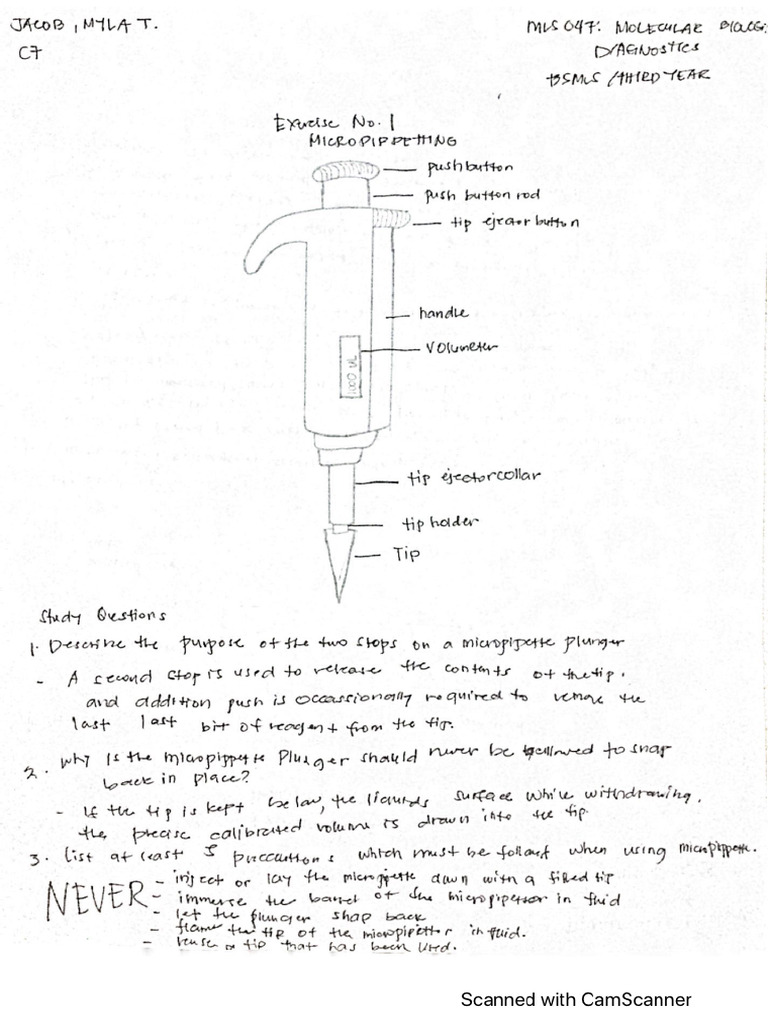 JACOB, MYLA T.
MLS 047: MOLECULAR BIOLOG
C7
DIAGNOSTICS
BSMLS / THIRD YEAR
Exercise No. 1
MICROPIPPETTING
push button
push button rod
tip ejector button
handle
Volumeter
1000 UL
tip ejector collar
tip holder
Tip
Study Questions
1. Describe the purpose of the two stops on a micropipette plunger
- A second stop is used to release the contents of the tip.
and addition push is occassionally required to remove the
last last bit of reagent from the tip.
2. Why is the micropippette Plunger should never be allowed to snap
back in place?
- If the tip is kept below, the liquids surface while withdrawing,
the precise calibrated volume is drawn into the tip.
3. List at least 5 precautions which must be follow when using micropippette.
NEVER - inject or lay the micropipette down with a filled tip
- immerse the barrel of the micropipettor in fluid
- let the plunger snap back
- flame the tip of the micropipettor in fluid.
- reuse a tip that has been used.
Scanned with CamScanner